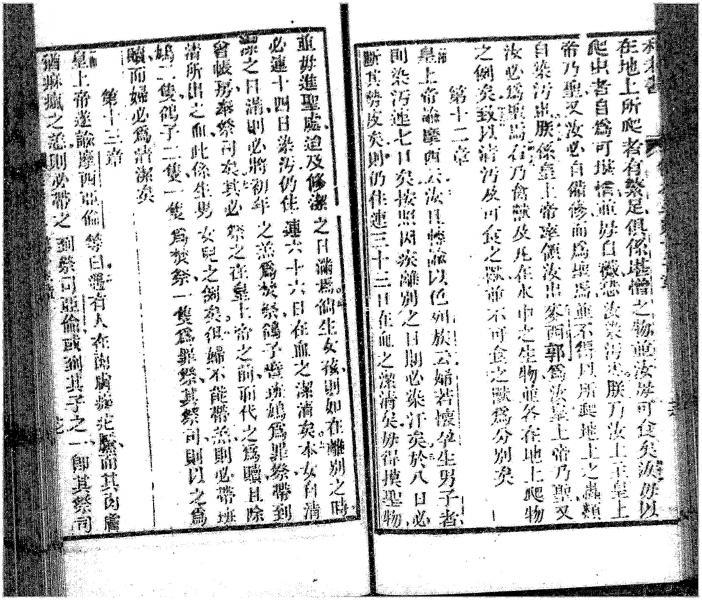 在地上所爬者有繁足俱係堪憎之物並汝毋可食矣汝毋以
爬虫者自為可堪憎並毋自穢恐汝染污焉朕乃汝上主皇上
帝乃聖又汝必自備修而為聖焉並不得以所爬地上之蟲類
自染污焉朕係皇上帝率領汝出麥西郭為汝皇上帝乃聖又
汝必為聖焉右乃禽獸及凡在水中之生物並各在地上爬物
之例矣致以清污及可食之獸並不可食之獸為分別矣
第十二章
皇上帝諭摩西云汝且轉諭以色列族云婦若懷孕生男子者
則染污連七日矣按照因疾離別之日期必染汙矣於八日必
斷其勢皮矣則仍住連三十三日在血之潔清矣毋得摸聖物
並毋進聖處迨及修潔之日滿焉倘生女孩則如在離別之時
必連十四日染污仍住連六十六日在血之潔清矣本女自清
潔之日滿則必將初年之羔為焚祭鴿子暨班鳩為罪祭帶到
會帳房奉祭司矣其必祭之在皇上帝之前而代之為贖且除
清所出之血此係生男女兒之例矣但婦不能帶羔則必帶班
鳩二隻鴿子二隻一隻為焚祭一隻為罪祭其祭司則以之為
贖而婦必為清潔矣
第十三章
皇上帝遂諭摩西亞倫等曰儻有人在肉膚
猶痳瘋之恙則必帶之到祭司亞倫或到其子之一即其祭司